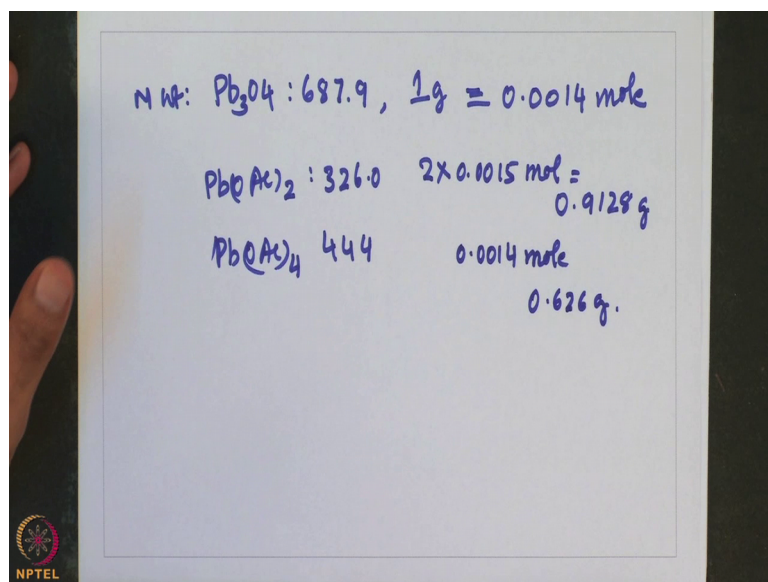 M Wt: Pb3O4 : 687.9, 1g = 0.0014 mole
Pb(OAc)2 : 326.0 2x0.0015 mol =
0.9128 g
Pb(OAc)4 444 0.0014 mole
0.626 g.
NPTEL